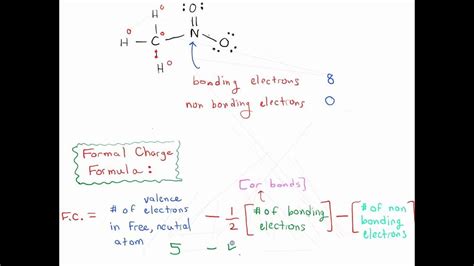 :O:
H C N O:
H
H
bonding electrons 8
non bonding electrons 0
Formal Charge
Formula:
[or bonds]
F.C. = # of valence electrons in free, neutral atom - 1/2 [# of bonding electrons] - [# of non bonding electrons]
5 -